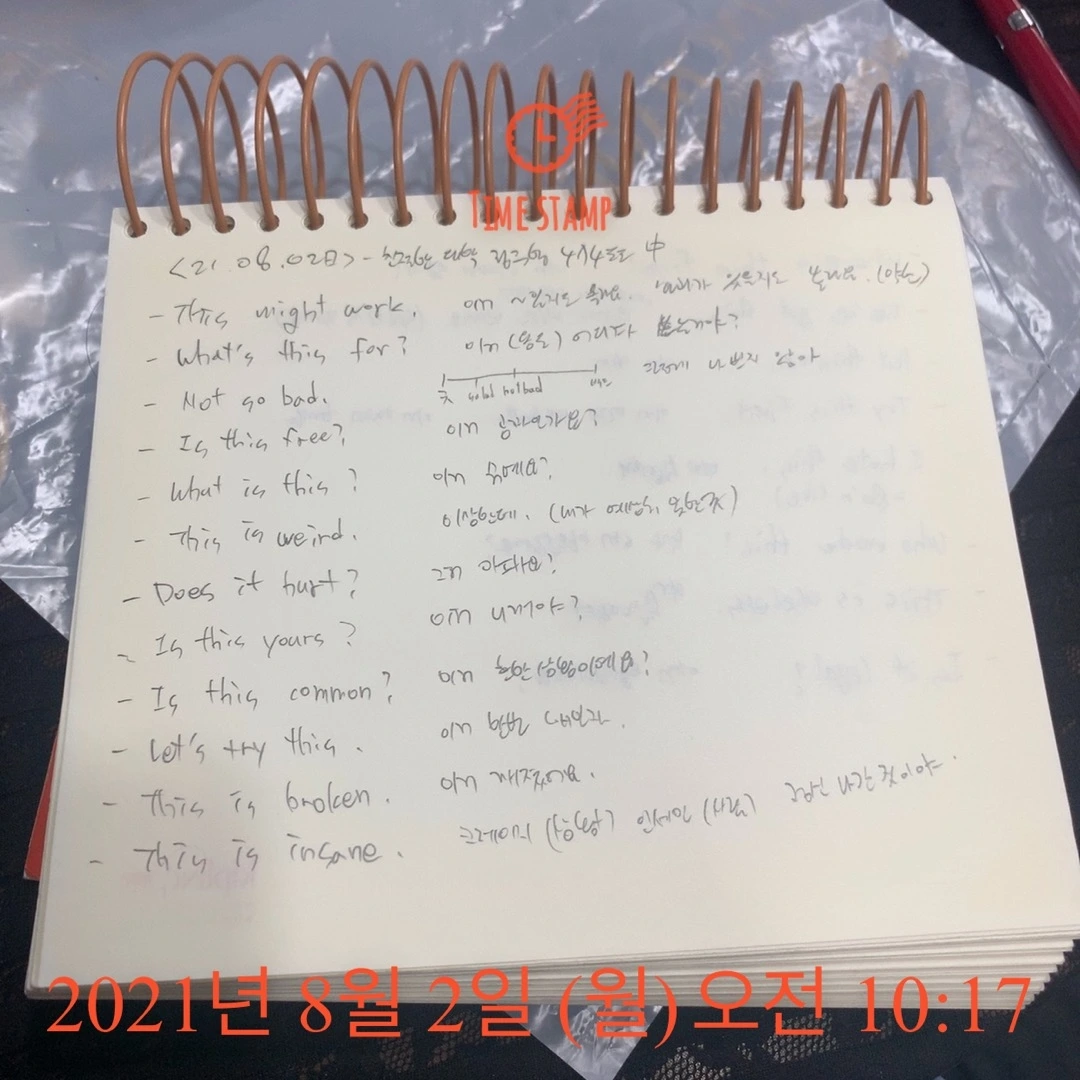 TIME STAMP
<21.08.02日> - 中
- This might work. 이거 ~일지도 몰라요 있을지도 몰라요.
- What's this for? 이거 (용도) 어디다 쓰는거야?
- Not so bad. not bad 그렇게 나쁘지 않아
- Is this free? 이거 공짜인가요?
- What is this? 이거 뭐예요?
- This is weird. 이상한데. (내가 예상치 못한 것)
- Does it hurt? 그거 아파요?
- Is this yours? 이거 니꺼야?
- Is this common? 이거 흔한 상황이예요?
- Let's try this. 이거 한번 해보자.
- This is broken. 이거 깨졌어요.
- This is insane. 크레이지 (상황) 인세인 (사람) 나간 것이야.
2021년 8월 2일 (월) 오전 10:17